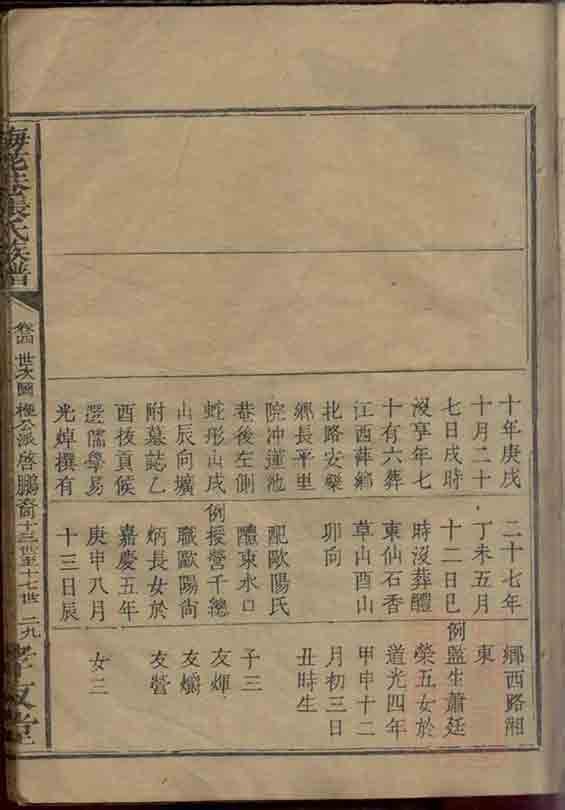 十年庚戌
十月二十
七日戌時
沒享年七
十有六葬
江西萍鄉
北路安樂
鄉長平里
院冲蓮池
巷後左側
蛇形山戌
山辰向壙
附墓誌乙
酉拔貢候
選儒學易
光焯撰有
二十七年
丁未五月
十二日巳
時沒葬醴
東仙石香
草山酉山
卯向
配歐陽氏
醴東水口
例授營千總
職歐陽尚
炳長女於
嘉慶五年
庚申八月
十三日辰
鄉西路湘
東
例監生蕭廷
榮五女於
道光四年
甲申十二
月初三日
丑時生
子三
友煇
友爝
友營
女二
梅花張氏族譜
卷四 世次圖 公派啓鵬裔十三世至十七世 二九
孝友堂